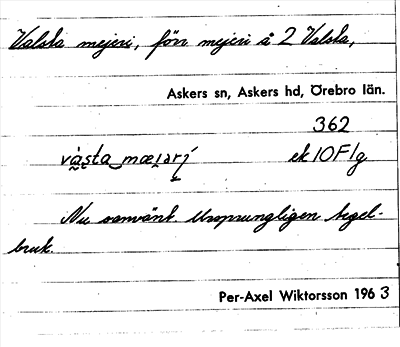 Valsta mejeri, förr mejeri å 2 Valsta,
Askers sn, Askers hd, Örebro län.
362
vàsta mæjərí ek 10F1g
Nu oanvänt. Ursprungligen tegel-
bruk.
Per-Axel Wiktorsson 1963